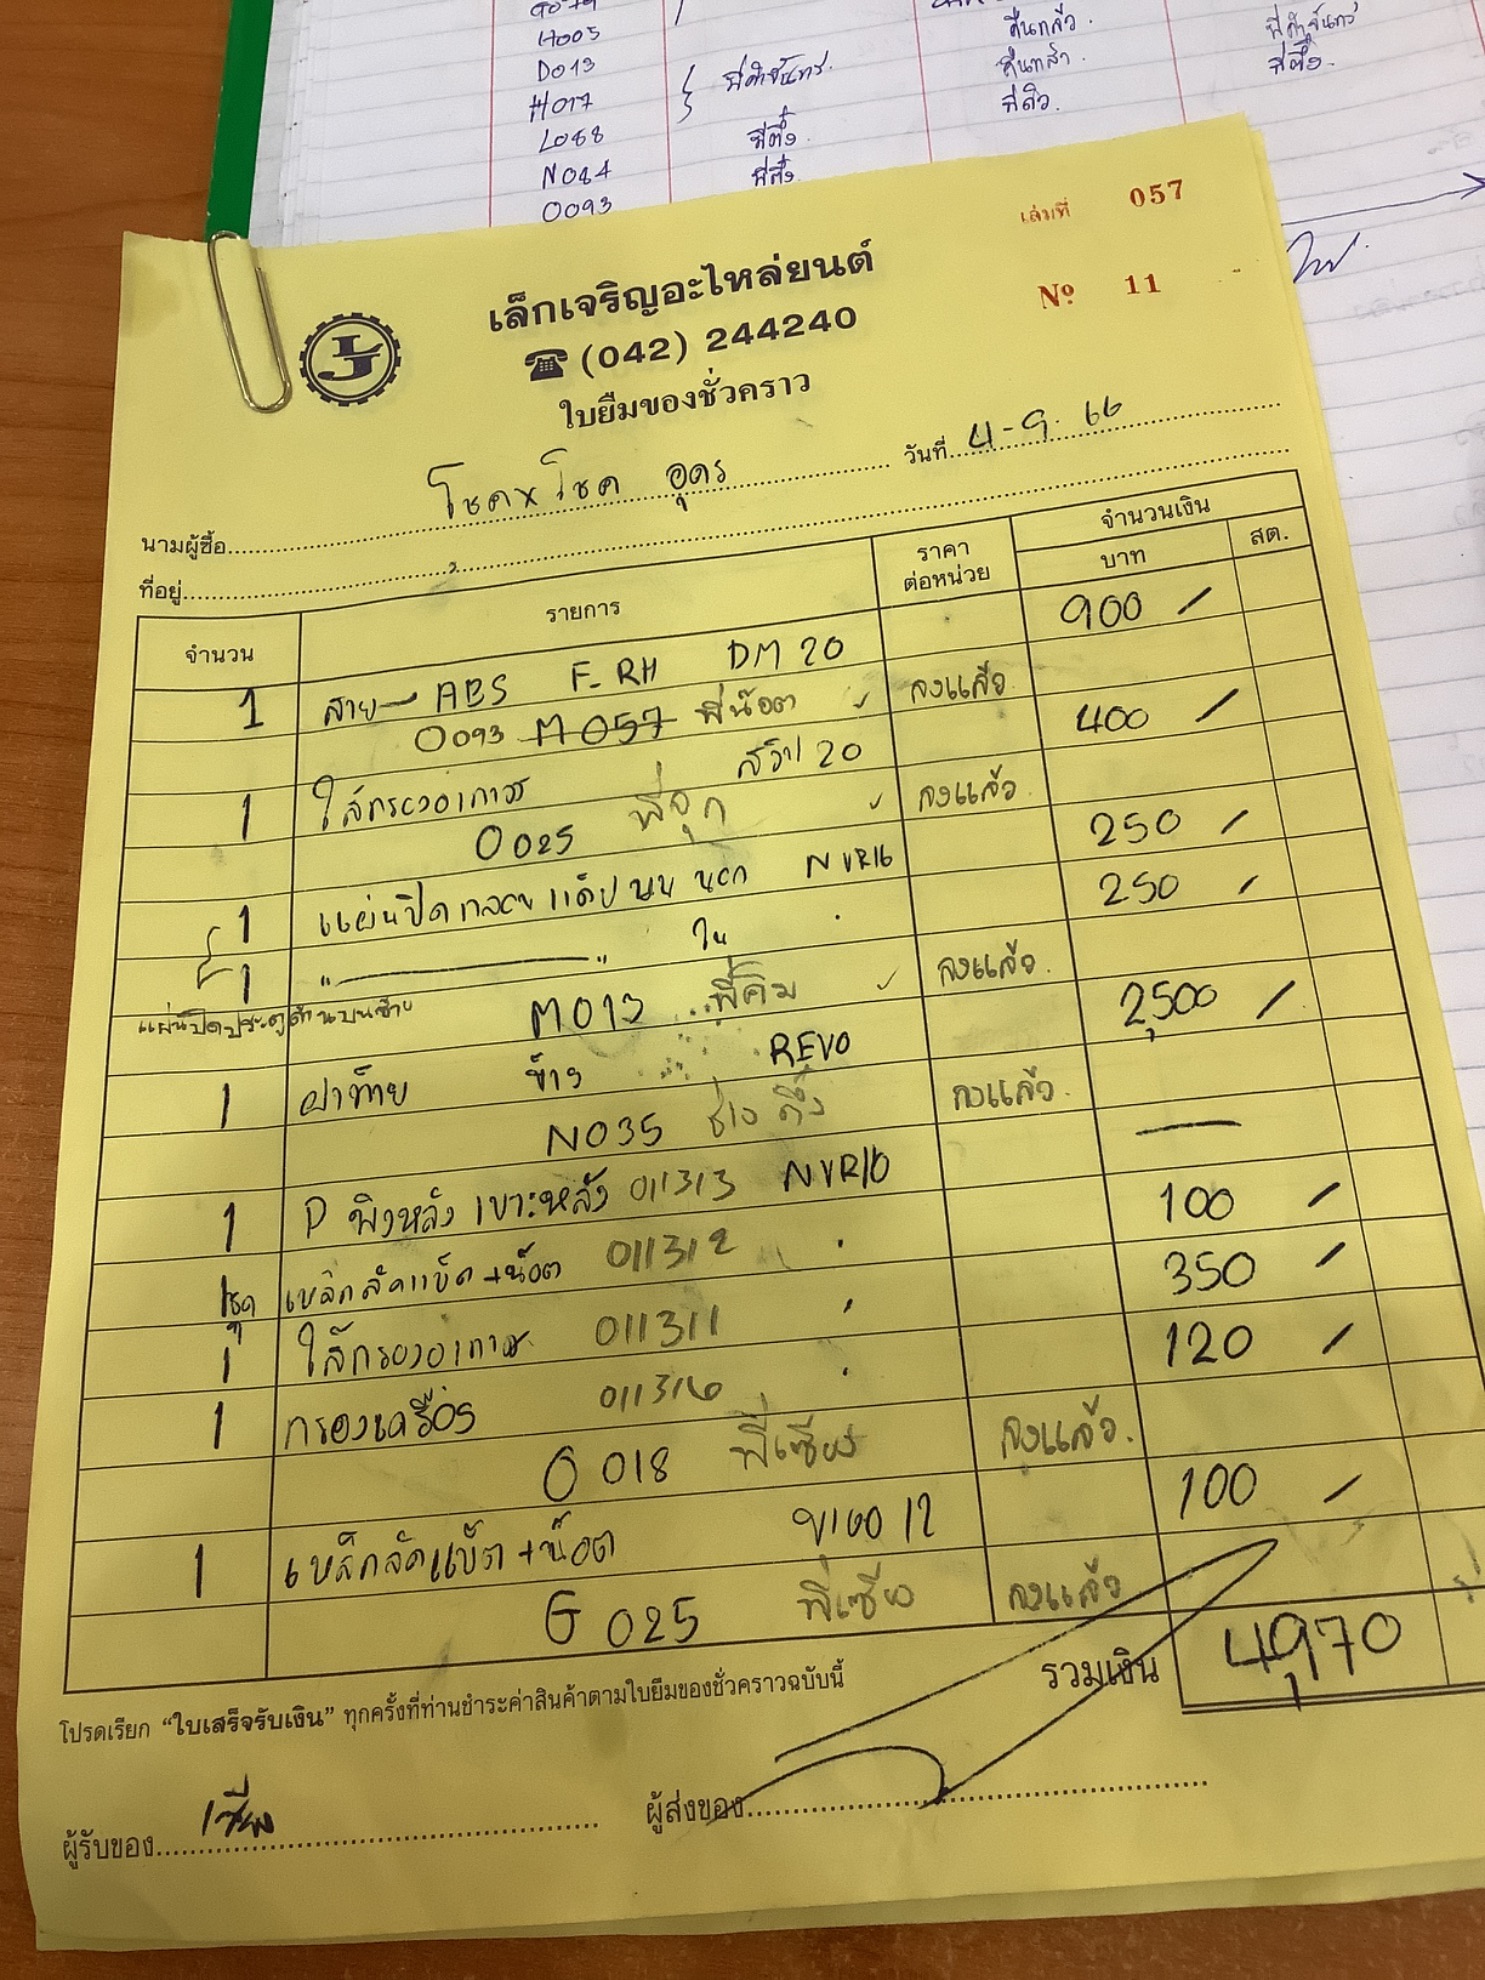 H005
D013
H017
L088
N084
O093
พี่คำจันทร์
พี่ตึ๋ง
พี่ตึ๋ง
คืนแล้ว
คืนแล้ว
พี่คำจันทร์
พี่ตึ๋ง
เล่มที่ 057
Nº 11
เล็กเจริญอะไหล่ยนต์
LJ
☎ (042) 244240
ใบยืมของชั่วคราว
นามผู้ซื้อ โชค x โชค อุดร วันที่ 4-9-66
ที่อยู่
จำนวน รายการ ราคาต่อหน่วย จำนวนเงิน บาท สต.
1 สาย ABS F-RH DM 20 900 -
O093 M057 พี่น๊อต ✓ ลงแล้ว
1 ไส้กรองอากาศ สวิป 20 400 -
O025 พี่จุก ✓ ลงแล้ว
1 แผ่นปิดกลอนแค๊ปบน นอก NVR16 250 -
1 " ———— " ใน 250 -
แผ่นปิดประตูด้านบนซ้าย M013 พี่คิม ✓ ลงแล้ว
1 ฝาท้าย ข้าง REVO 2,500 -
N035 ช่างตึ๋ง ลงแล้ว
1 P พิงหลัง เบาะหลัง 011313 NVR16 —
1 ชุด เหล็กลัดแบ็ต+น็อต 011312 100 -
1 ไส้กรองอากาศ 011311 350 -
1 กรองเครื่อง 011316 120 -
O 018 พี่เซียง ลงแล้ว.
1 เหล็กลัดแบ็ต+น็อต 12 100 -
G 025 พี่เซียง ลงแล้ว
รวมเงิน 4,970
โปรดเรียก “ใบเสร็จรับเงิน” ทุกครั้งที่ท่านชำระค่าสินค้าตามใบยืมของชั่วคราวฉบับนี้
ผู้รับของ เซียง ผู้ส่งของ